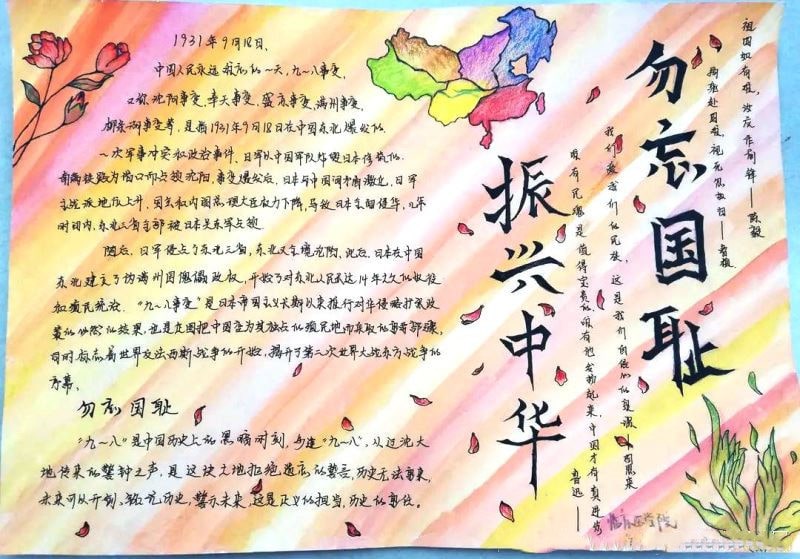 1931年9月18日、
中国人民永远铭记的一天,九一八事变,
又称沈阳事变、奉天事变、盛京事变、满州事变、
柳条湖事变等,是指1931年9月18日在中国东北爆发的
一次军事冲突和政治事件、日军以中国军队炸毁日本修筑的
南满铁路为借口而占领沈阳,事变爆发后,日本与中国矛盾激化,日军
主战派地位上升,国会和内阁总理大臣权力下降,导致日本全面侵华,几年
时间内,东北三省全部被日本关东军占领
随后,日军侵占了东北三省,东北又全境沦陷,此后,日本在中国
东北建立了伪满州国傀儡政权,开始了对东北人民长达14年之久的奴役
和殖民统治.“九一八事变”是日本帝国主义长期以来推行对华侵略扩张政
策的必然的结果,也是企图把中国变为其独占的殖民地而采取的重要步骤,
同时标志着世界反法西斯战争的开始,揭开了第二次世界大战东方战争的
序幕。
勿忘国耻
“九一八”是中国历史上的黑暗时刻,每逢“九一八”,从辽沈大
地传来的警钟之声,是这块土地拒绝遗忘的誓言,历史无法重来,
未来可以开创、铭记历史,警示未来,这是正义的担当,历史的昭位。
勿忘国耻
振兴中华
祖国如有难,汝应作前锋——陈毅
捐躯赴国难,视死忽如归——曹植
我们爱我们的民族,这是我们自信心的泉源——周恩来
唯有民魂是值得宝贵的,唯有他发扬起来,中国才有真进步——鲁迅